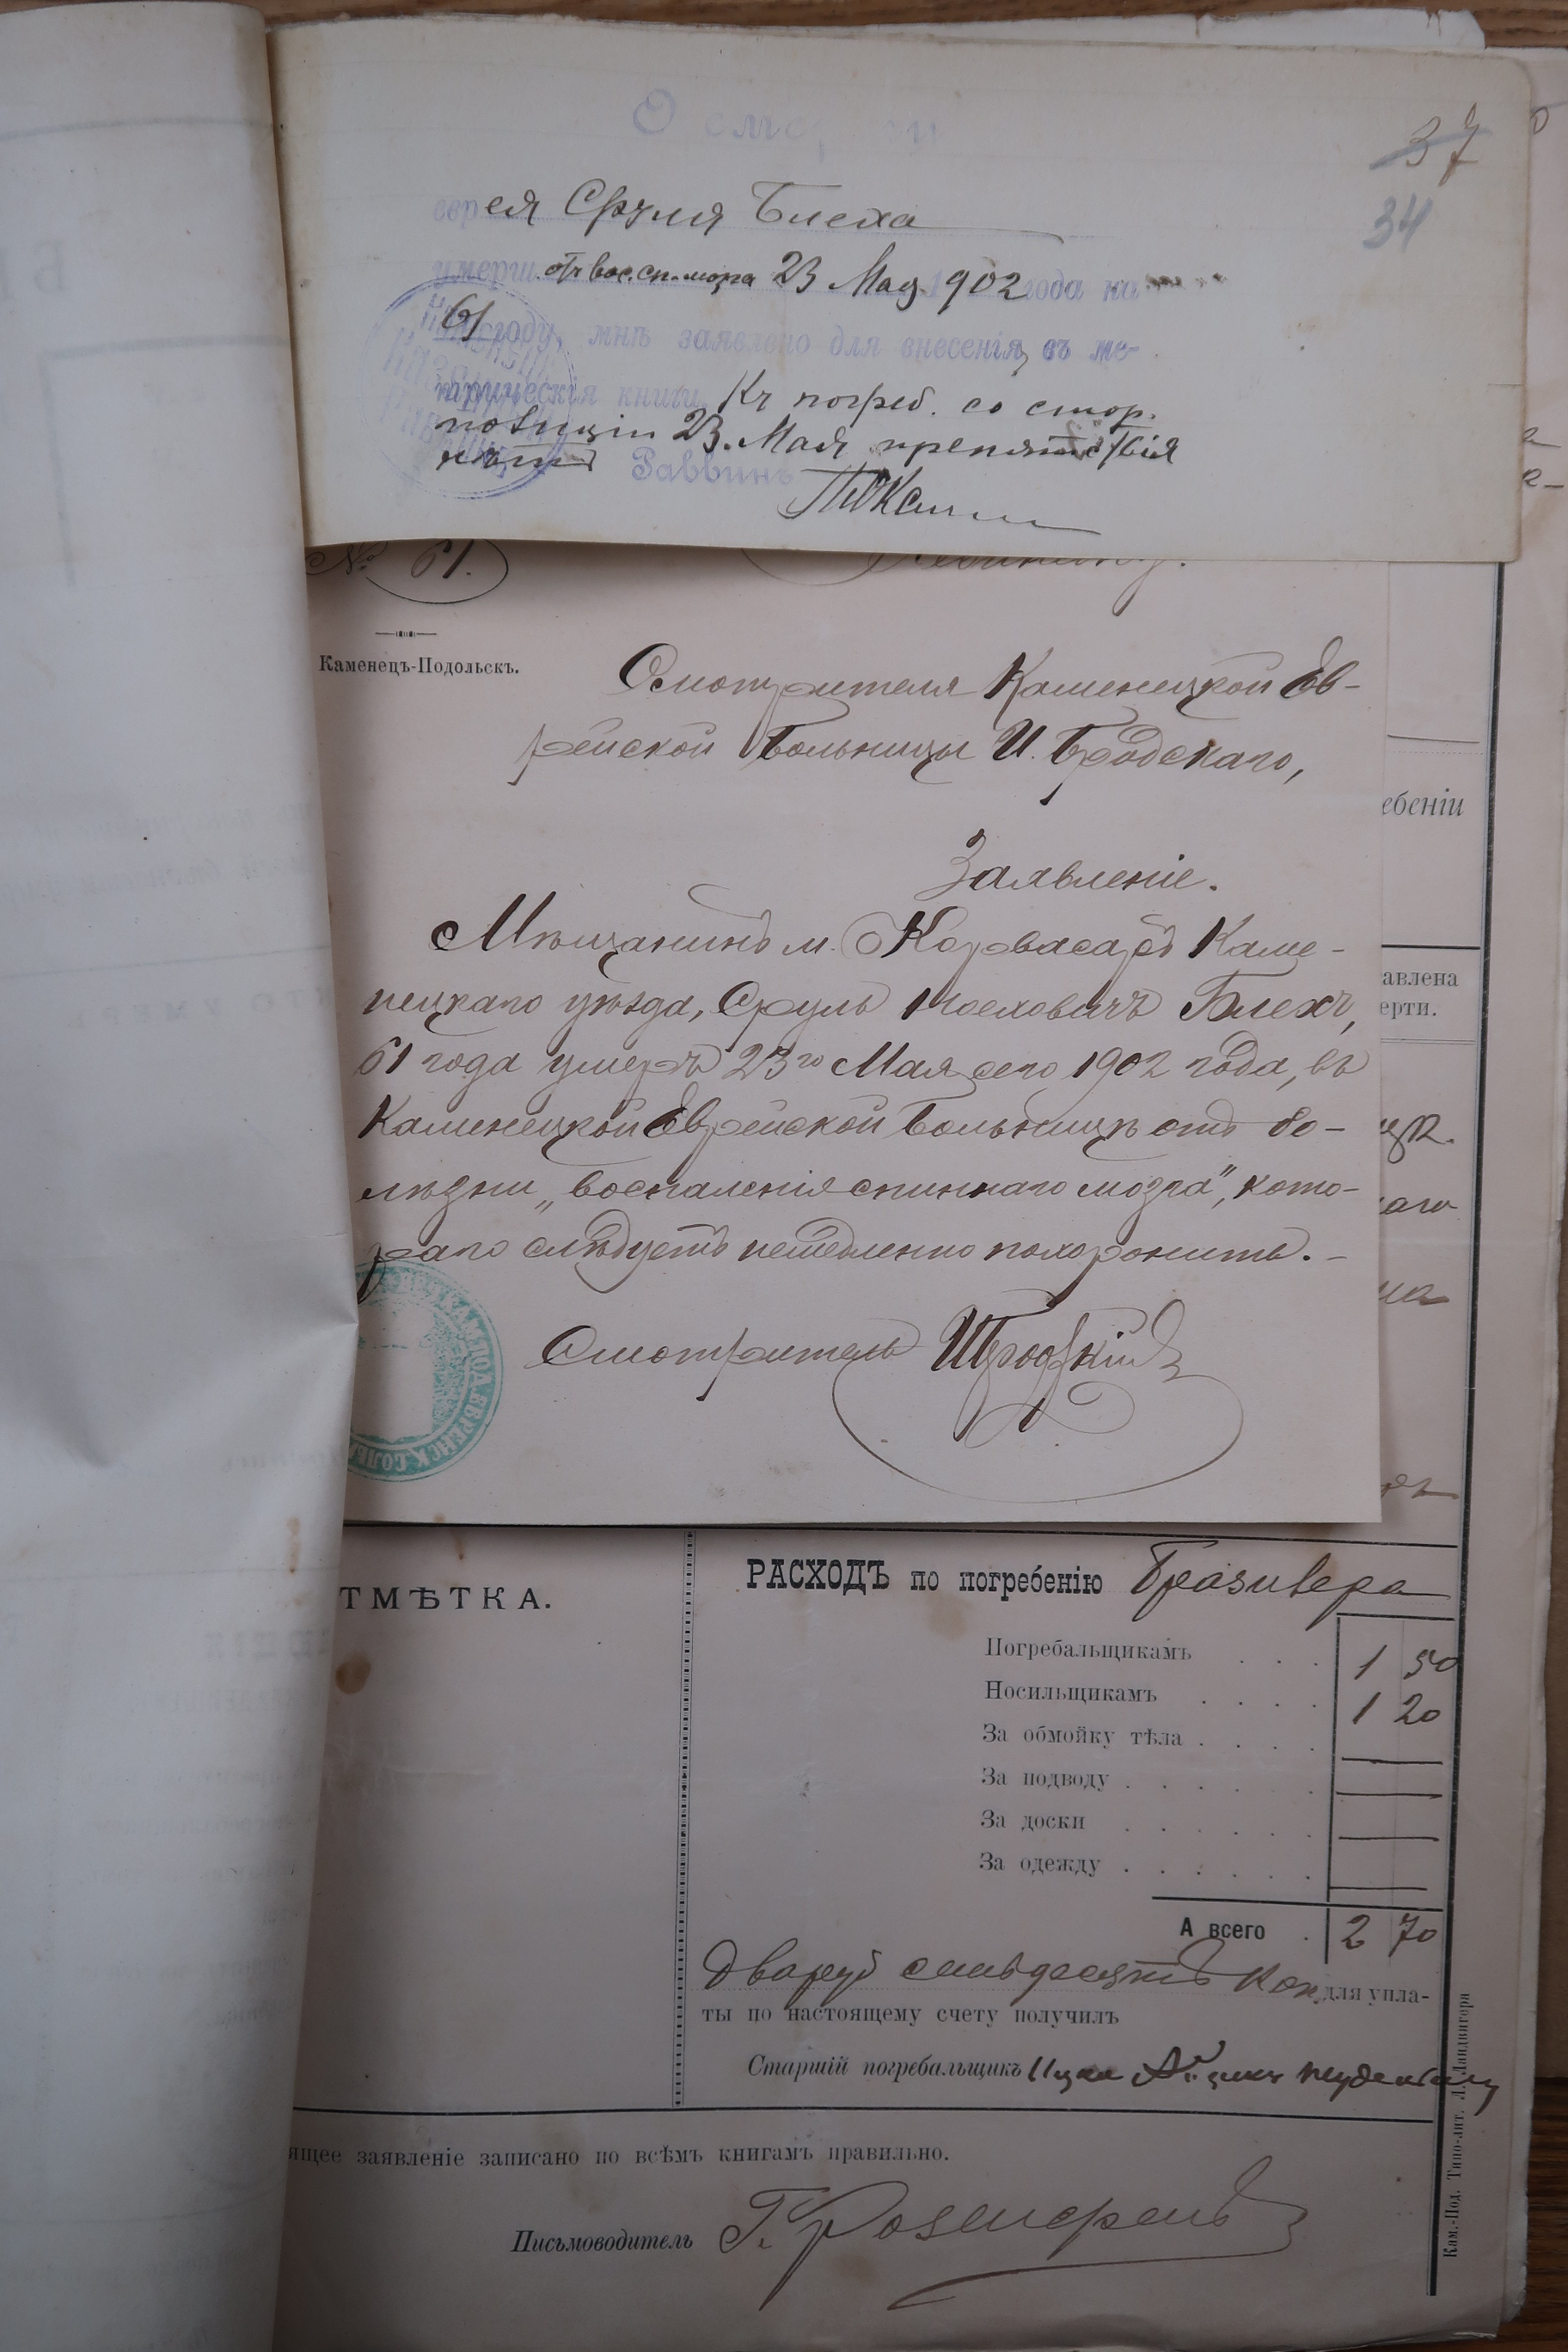 О смерти
37
34
еврея Сруля Блеха
умерш. отъ вос. сп. мозга 23 Мая 1902 года на
61 году, мнѣ заявлено для внесенія въ ме-
трическія книги. Къ погреб. со стор.
полиціи 23. Мая препятствія
нѣтъ Раввинъ
№ 61.
Каменецъ-Подольскъ.
Смотрителя Каменецкой Ев-
рейской Больницы И. Бродскаго,
Заявленіе.
Мѣщанинъ м. Карвасаръ Каме-
нецкаго уѣзда, Сруль Блехъ,
61 года умеръ 23го Мая сего 1902 года, въ
Каменецкой Еврейской Больницѣ отъ бо-
лѣзни „воспаленія спиннаго мозга", кото-
раго слѣдуетъ немедленно похоронить.
Смотритель
ебеніи
авлена
ерти.
ТМѢТКА.
РАСХОДЪ по погребенію Бразивера
Погребальщикамъ . . . 1 50
Носильщикамъ . . . . 1 20
За обмойку тѣла . . . .
За подводу . . . . . .
За доски . . . . . .
За одежду . . . . . .
А всего . 2 70
Два руб семьдесятъ коп. для упла-
ты по настоящему счету получилъ
Старшій погребальщикъ Ицко
ящее заявленіе записано по всѣмъ книгамъ правильно.
Письмоводитель Г. Розенгренъ
Кам.-Под. Типо-лит. Л. Ландвигера